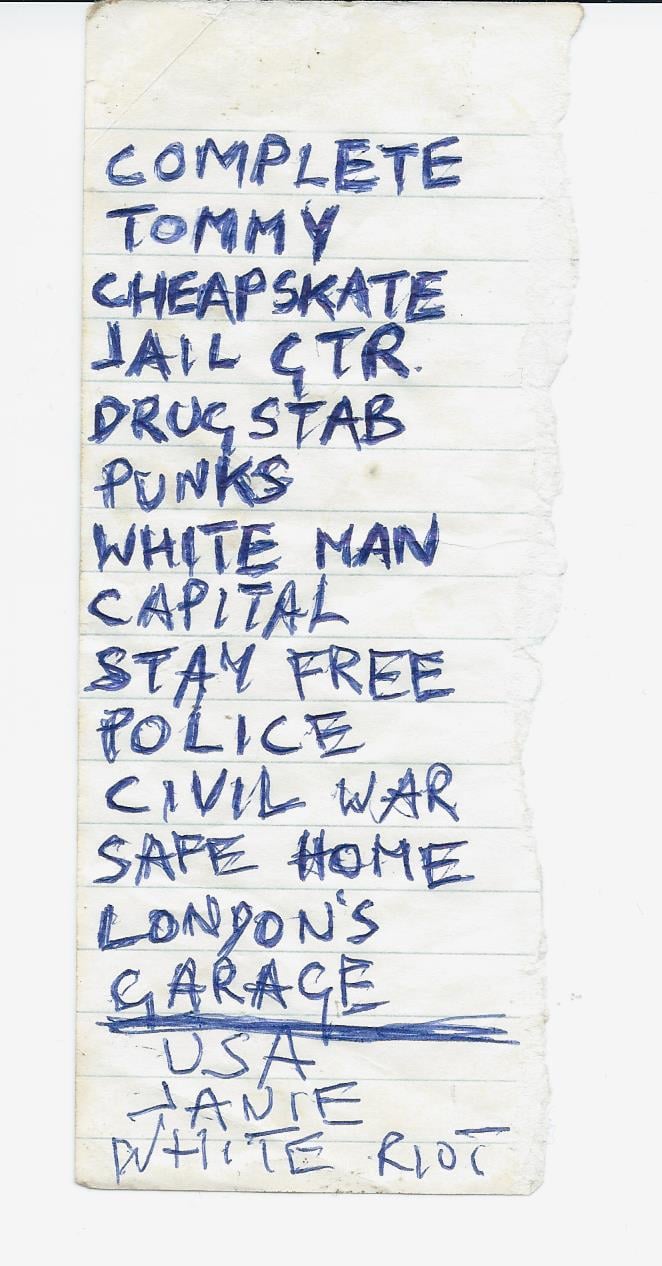 COMPLETE
TOMMY
CHEAPSKATE
JAIL GTR.
DRUG STAB
PUNKS
WHITE MAN
CAPITAL
STAY FREE
POLICE
CIVIL WAR
SAFE HOME
LONDON'S
GARAGE
USA
JANIE
WHITE RIOT